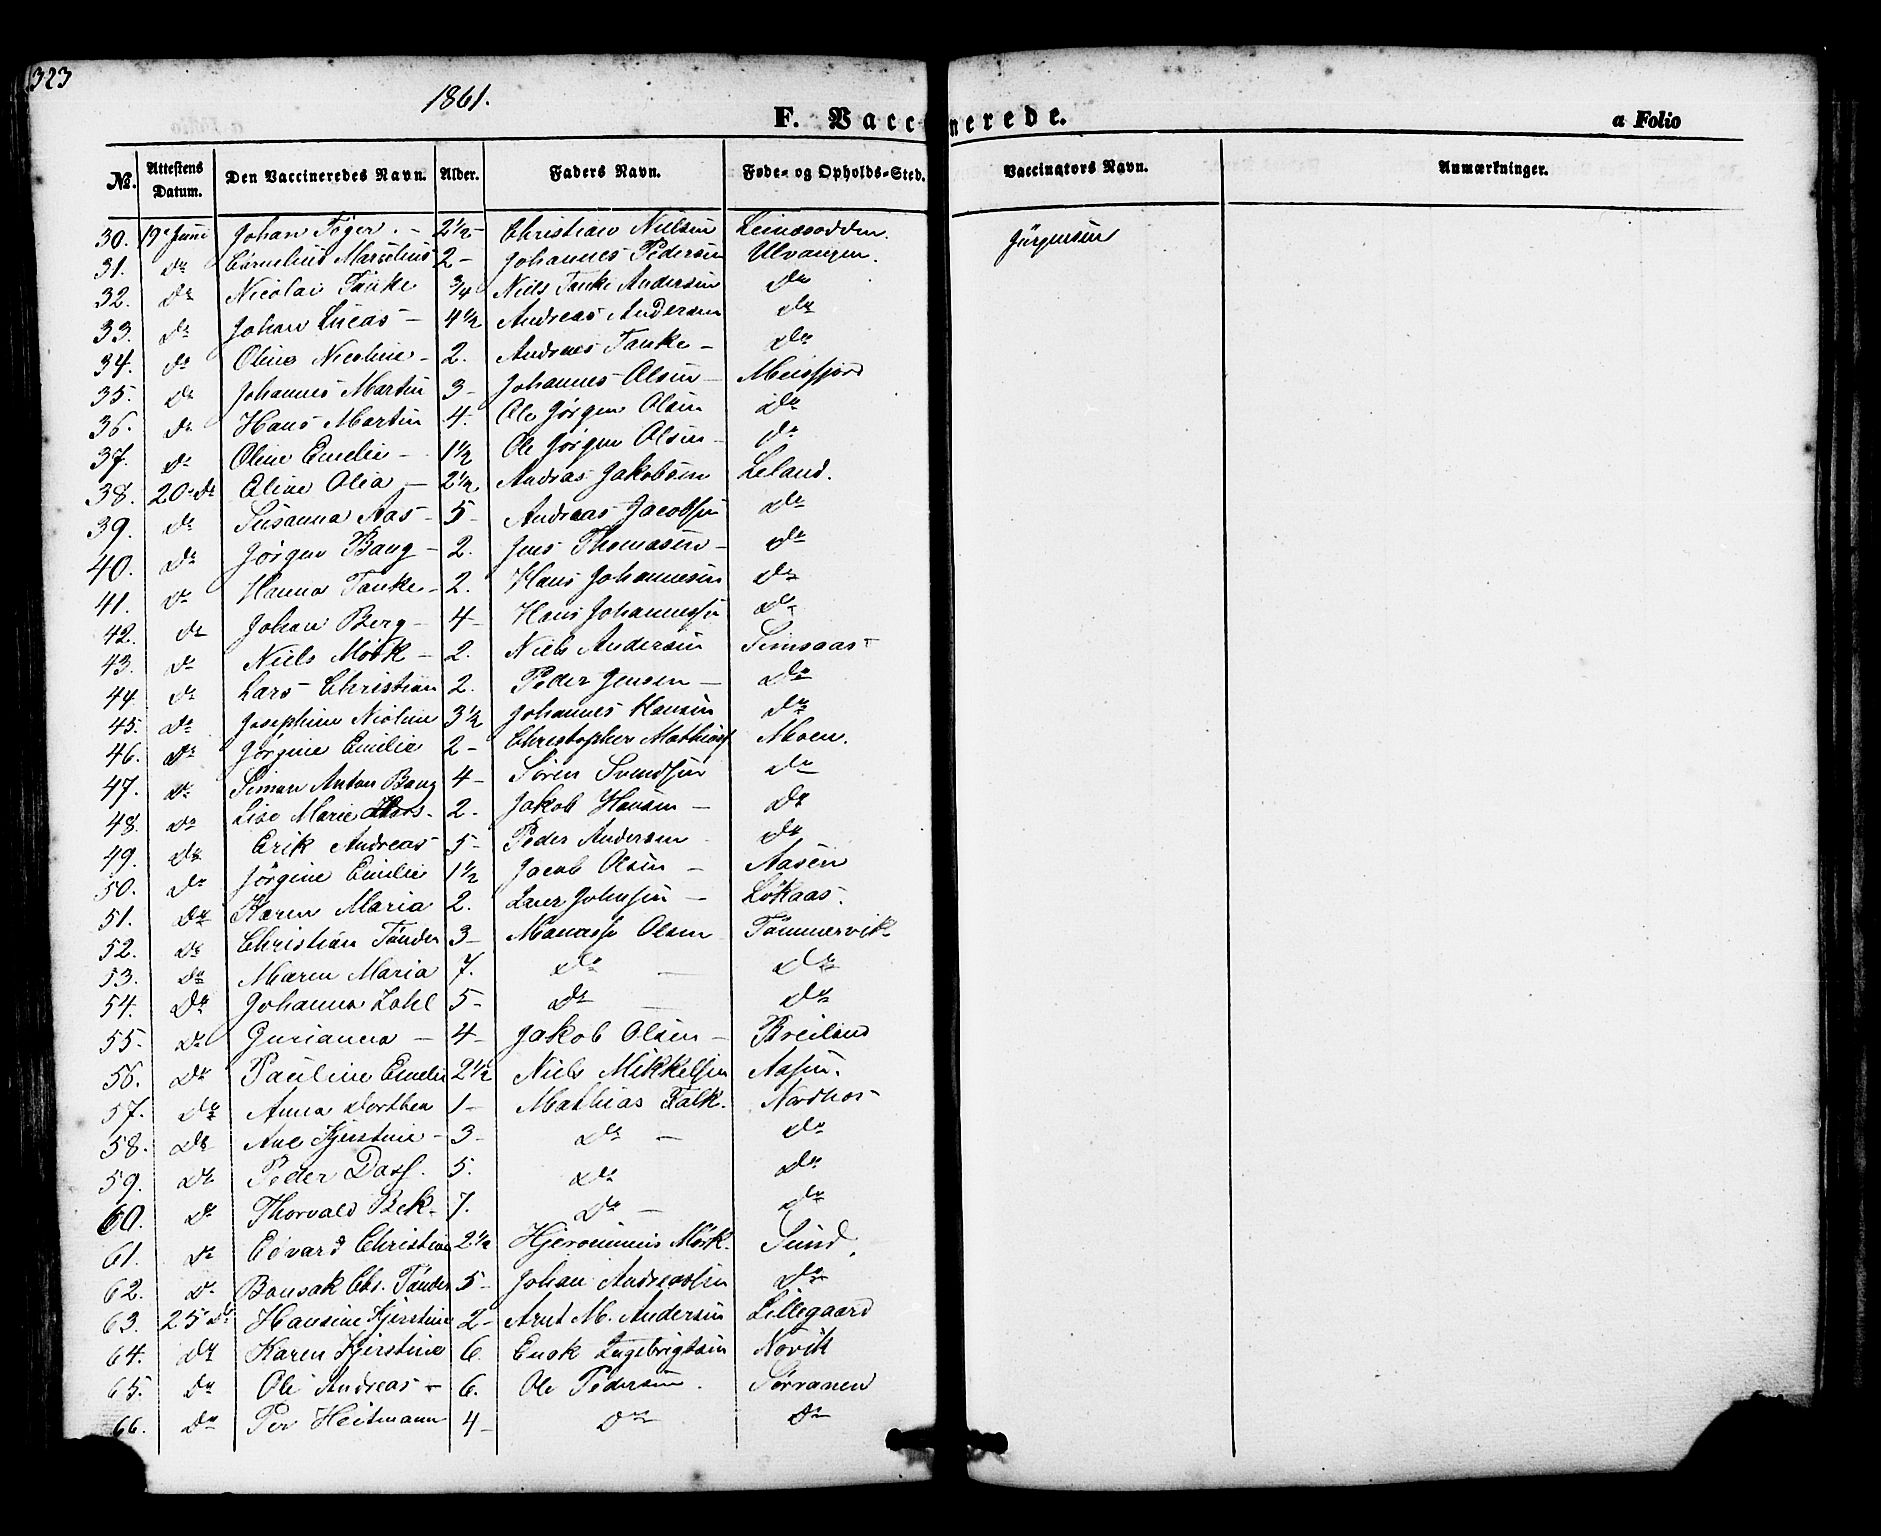 323
1861.
F. Vaccinerede.
a Folio
No. Attestens Datum. Den Vaccineredes Navn. Alder. Faders Navn. Føde- og Opholds-Sted. Vaccinators Navn. Anmærkninger.
30. 19e Juni Johan Töger. - 2½ - Christian Nielsen Leinesodden. Jürgensen
31. do Cornelius Marselius 2 - Johannes Pedersen Ulvangen.
32. do Nicolai Tanke ¾ Niels Tanke Andersen do
33. do Johan Lucas - 4½ Andreas Andersen do
34. do Oline Nicoline - 2. Andreas Tanke - do
35. do Johannes Martin 3 - Johannes Olsen - Meisfjord
36. do Hans Martin 4. Ole Jörgen Olsen do
37. do Oline Emelie - 1½ Ole Jörgen Olsen - do
38. 20e do Eline Olea - 2½ Andras Jakobsen Leland.
39. do Susanna Aas - 5 - Andreas Jacobsen do
40. do Jörgen Bang - 2. Jens Thomasen - do
41. do Hanna Tanke - 2. Hans Johannesen do
42. do Johan Berg - 4 - Hans Johannessen do
43. do Niels Mörk - 2. Niels Andersen Simsaas -
44 do Lars Christian 2. Peder Jensen - do
45. do Josephine Nicoline 3½ Johannes Hansen do
46. do Jörgine Emilie 2 - Christopher Mathias Moen.
47. do Simon Anton Bang 4 - Sören Svendsen do
48. do Lise Marie - 2. Jakob Hansen - do
49. do Erik Andreas 5 - Peder Andersen do
50. do Jörgine Emilie 1½ Jacob Olsen - Aasen
51. do Karen Maria 2. Johnsen - Lökaas.
52. do Christian Tönder 3 - Manasse Olsen Tömmervik
53. do Maren Maria 7. do - do
54. do Johanna Zahl 5 - do - do
55. do Gurianna - 4 - Jakob Olsen - Breiland
56. do Pauline Emelie 2½ Niels Mikkelsen Aasen.
57. do Anna Dorthea 1 - Mathias Falk. Nordhus -
58. do Ane Kjerstine - 3 - do - do
59. do Peder Dass. 5. do do
60. do Thorvald Bek - 7. do - do
61. do Edvard Christian 2½ Hjeronimus Mörk. Sund.
62. do Bonsak Chr. Tönder 5 - Johan Andreassen do
63. 25e do Hansine Kjerstine 2 - Arnt M. Andersen Lillegaard
64. do Karen Kjerstine 6. Enok Ingebrigtsen Novik
65. do Ole Andreas - 6. Ole Pedersen. Sörranen
66. do Per Heitmann 4 - do do